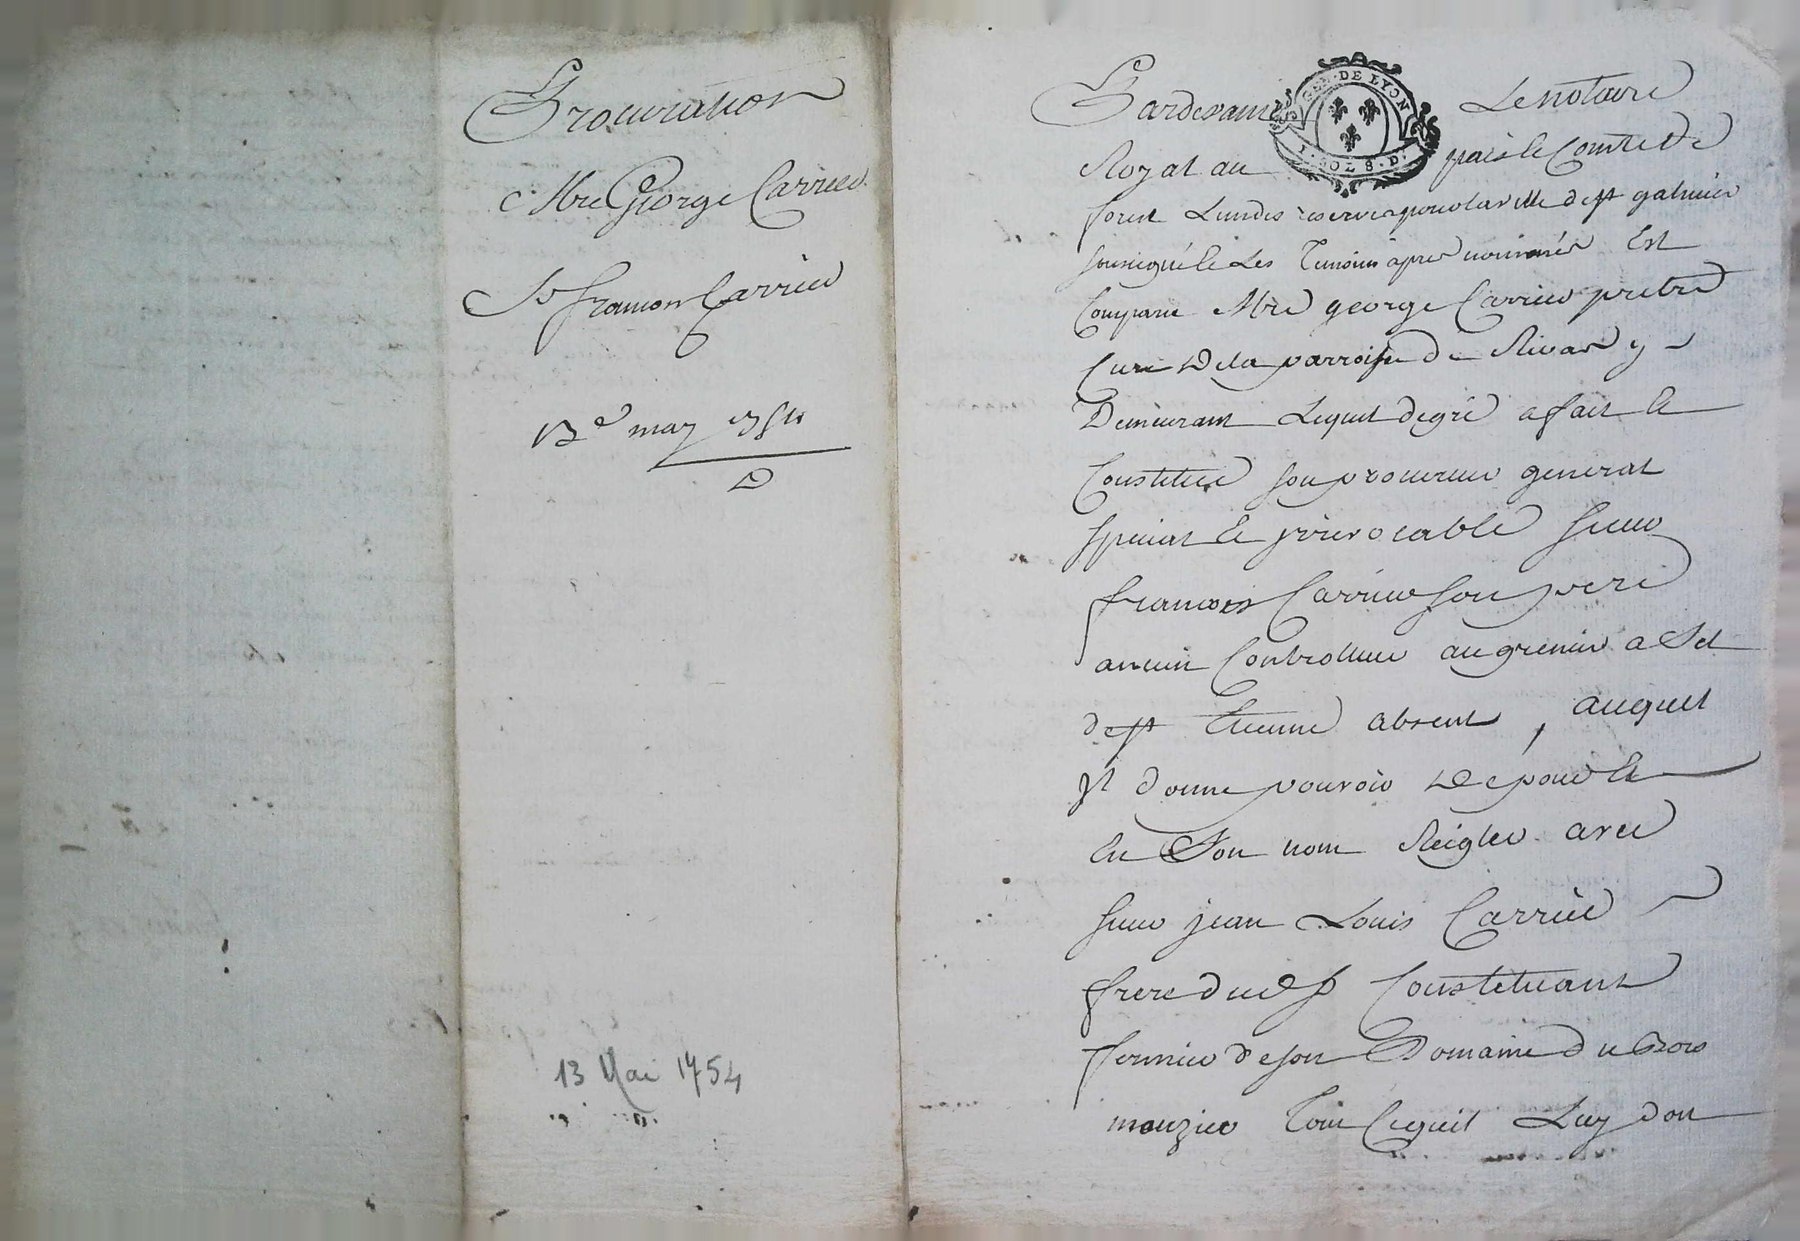 Procuration
Mre George Carrier
Sr francois Carrier
13e may 1754
13 Mai 1754
GEN. DE LYON
1. SOL 8. D.
Pardevant Le notaire
Royal au païs le Comté de
forest Lundes reservés pour la ville de st galmier
soussigné le Les Temoins apres nommés Est
Comparu Mre george Carrier prebtre
Curé De la parroisse de Rivas y
Demeurant Lequel de gré a fait et
Constitué son procureur general
special et irrevocable sieur
francois Carrier son pere
ancien Controlleur au grenier a Sel
de st Etienne absent, auquel
Il donne pouvoir De pour et
en Son nom Reigler avec
sieur jean Louis Carrier
frere dudt Sr Constituant
fermier de son Domaine du Bois
mouzier Tout Cequil Luy doit